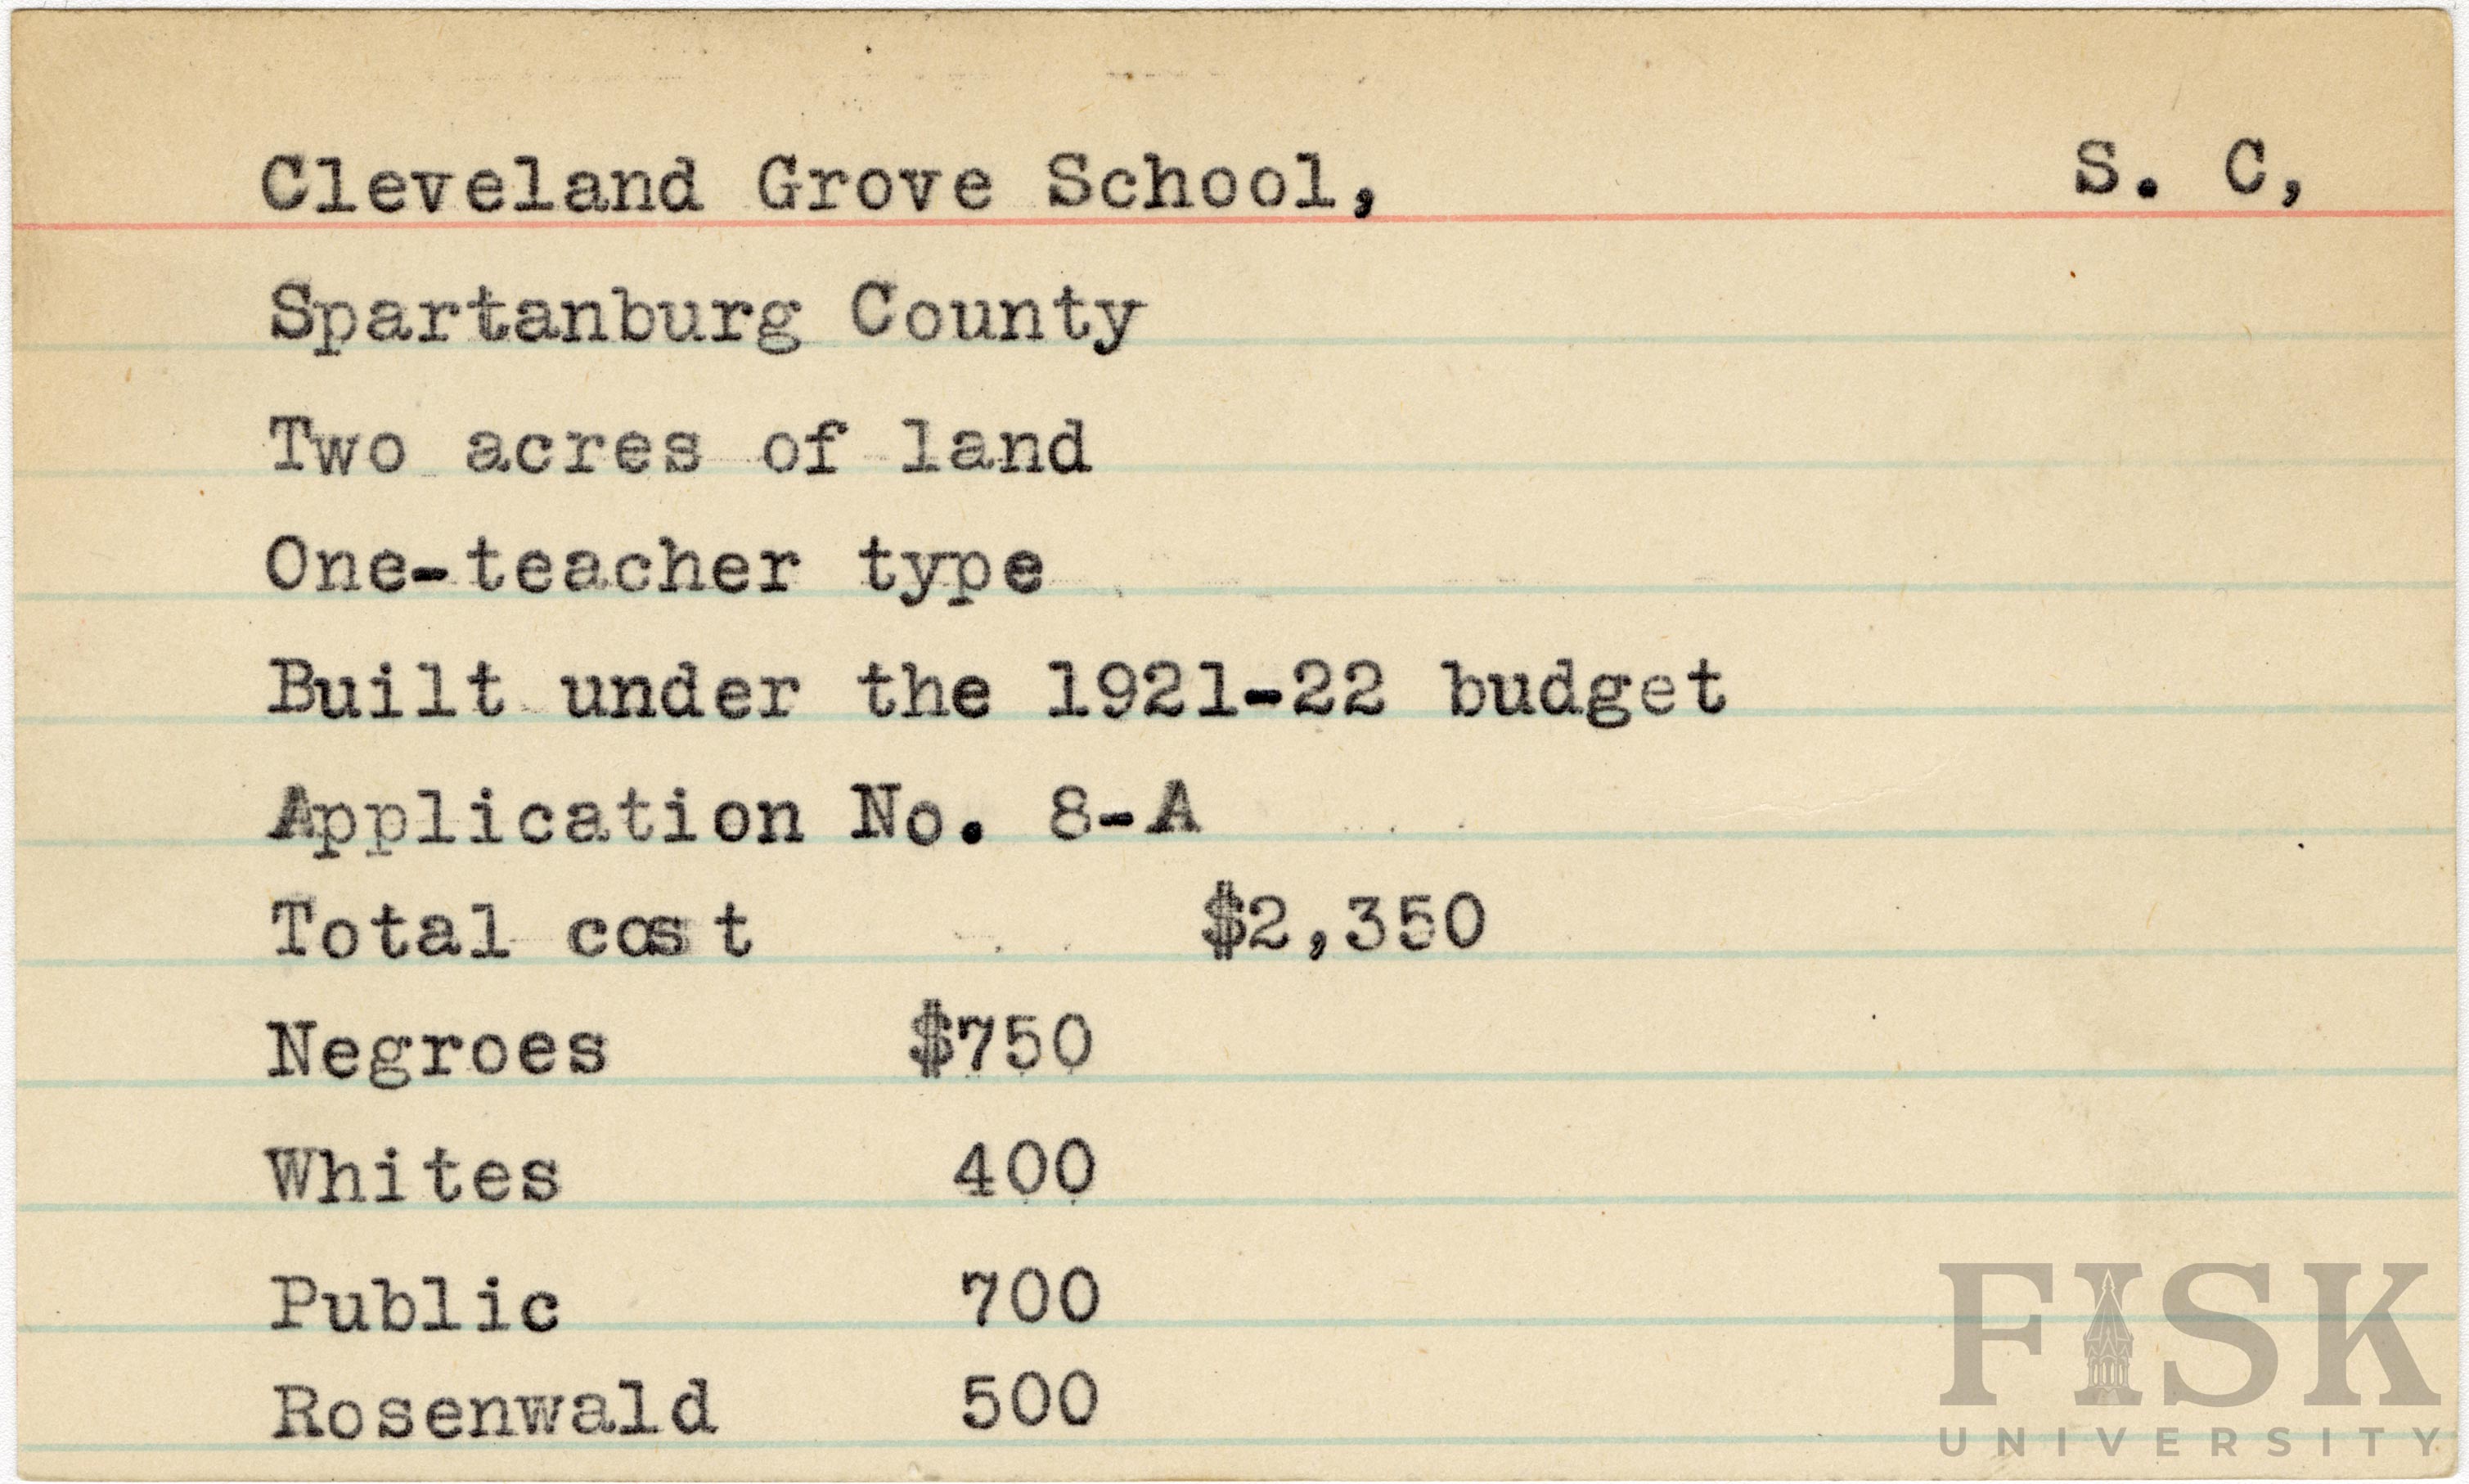 Cleveland Grove School, S. C,
Spartanburg County
Two acres of land
One-teacher type
Built under the 1921-22 budget
Application No. 8-A
Total cost $2,350
Negroes $750
Whites 400
Public 700
Rosenwald 500
FISK
UNIVERSITY